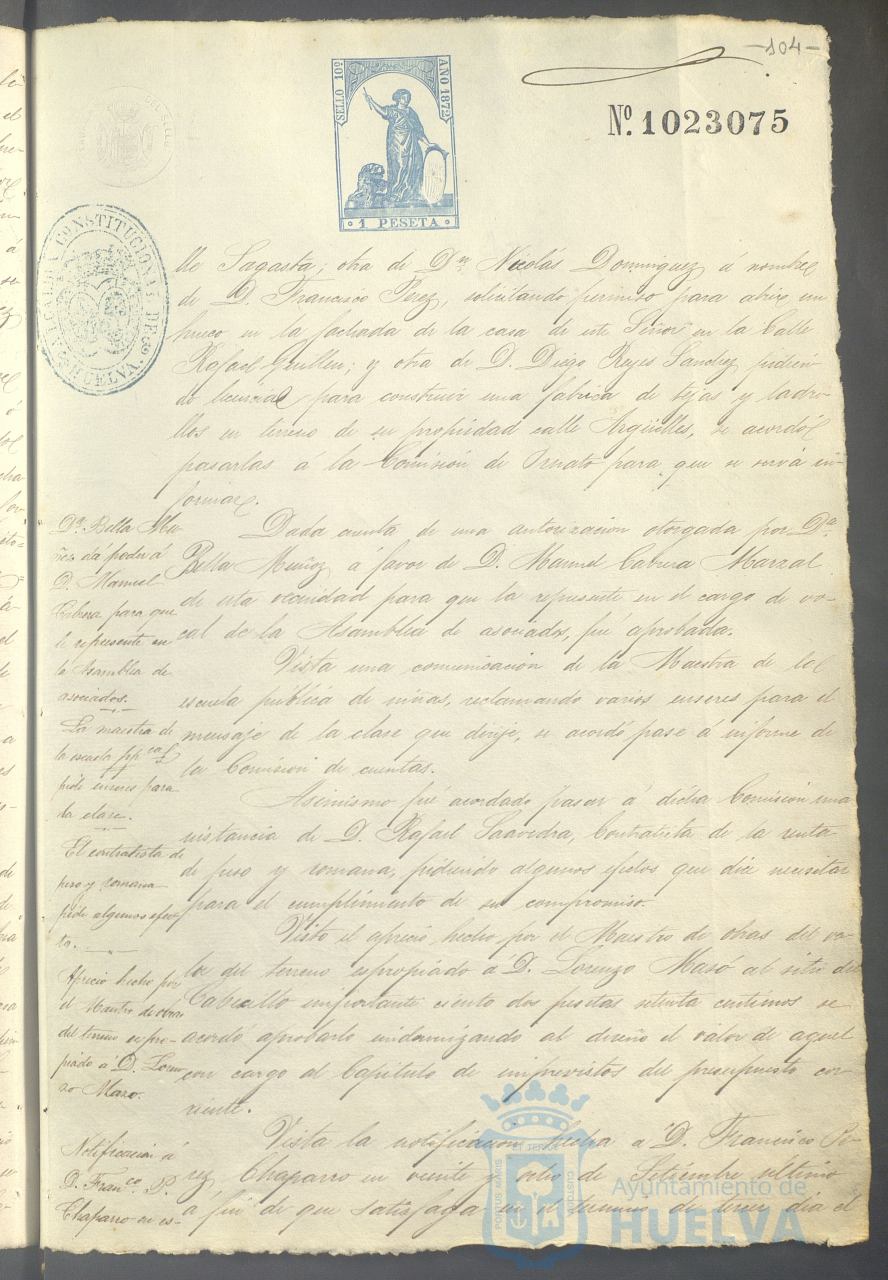 -104-
SELLO 10º
AÑO 1872
1 PESETA
Nº 1023075
ALCALDIA CONSTITUCIONAL DE HUELVA
lle Sagasta; otra de Dn. Nicolás Dominguez á nombre
de D. Francisco Perez, solicitando permiso para abrir un
hueco en la fachada de la casa de este Señor en la Calle
Rafael Guillen; y otra de D. Diego Reyes Sanchez pidien-
do licencia para construir una fábrica de tejas y ladri-
llos en terreno de su propiedad calle Argüelles, se acordó
pasarlas á la Comisión de Ornato para que se sirva in-
formar.
Dª. Bella Mu-
ñoz dá poder á
D. Manuel
Cabrera para que
le represente en
la Asamblea de
asociados.
Dada cuenta de una autorización otorgada por Dª.
Bella Muñoz á favor de D. Manuel Cabrera Marzal
de esta vecindad para que la represente en el cargo de vo-
cal de la Asamblea de asociados, fué aprobada.
La maestra de
la escuela
pide enseres para
la clase.
Vista una comunicación de la Maestra de la
escuela pública de niñas, reclamando varios enseres para el
mensaje de la clase que dirije, se acordó pase á informe de
la Comision de cuentas.
El contratista de
peso y romana
pide algunos efec-
to.
Asimismo fué acordado pasar á dicha Comision una
instancia de D. Rafael Saavedra, Contratista de la renta
de peso y romana, pidiendo algunos efectos que dice necesitar
para el cumplimiento de su compromiso.
Aprecio hecho por
el Maestro de obras
del terreno expro-
piado á D. Loren-
zo Mazo.
Visto el aprecio hecho por el Maestro de obras del va-
lor del terreno espropiado á D. Lorenzo Masó al sitio del
Cabezillo importante ciento dos pesetas setenta centimos se
acordó aprobarlo indemnizando al dueño el valor de aquel
con cargo al Capitulo de imprevistos del presupuesto cor-
riente.
Notificacion á
D. Franco. P.
Chaparro en es-
Vista la notificacion hecha a D. Francisco Pe-
rez Chaparro en veinte y ocho de Setiembre último
á fin de que satisfaga en el termino de tercer dia el
PORTUS MARIS ET TERRAE CUSTODIA
Ayuntamiento de
HUELVA